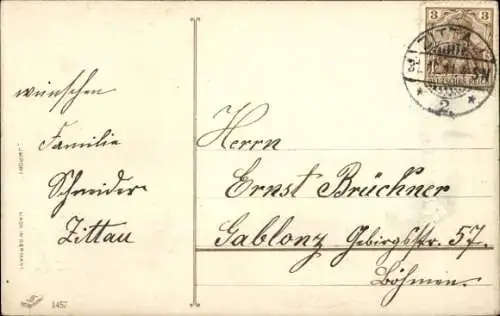 wünschen
Familie
Schneider
Zittau
Herrn
Ernst Brückner
Gablonz Gebirgsstr. 57.
Böhmen.
3 3
ZITTAU
2
1457